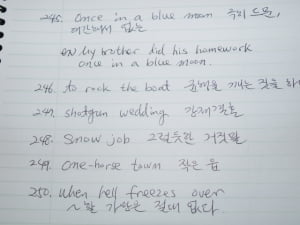 245. Once in a blue moon 극히 드문,
여간해서 없는
ex) My brother did his homework
once in a blue moon.
246. to rock the boat 균형을 깨는 것을 하
247. shotgun wedding
248. Snow job 그럴듯한 거짓말
249. one-horse town 작은 읍
250. when hell freezes over
~할 가망은 절대 없다.